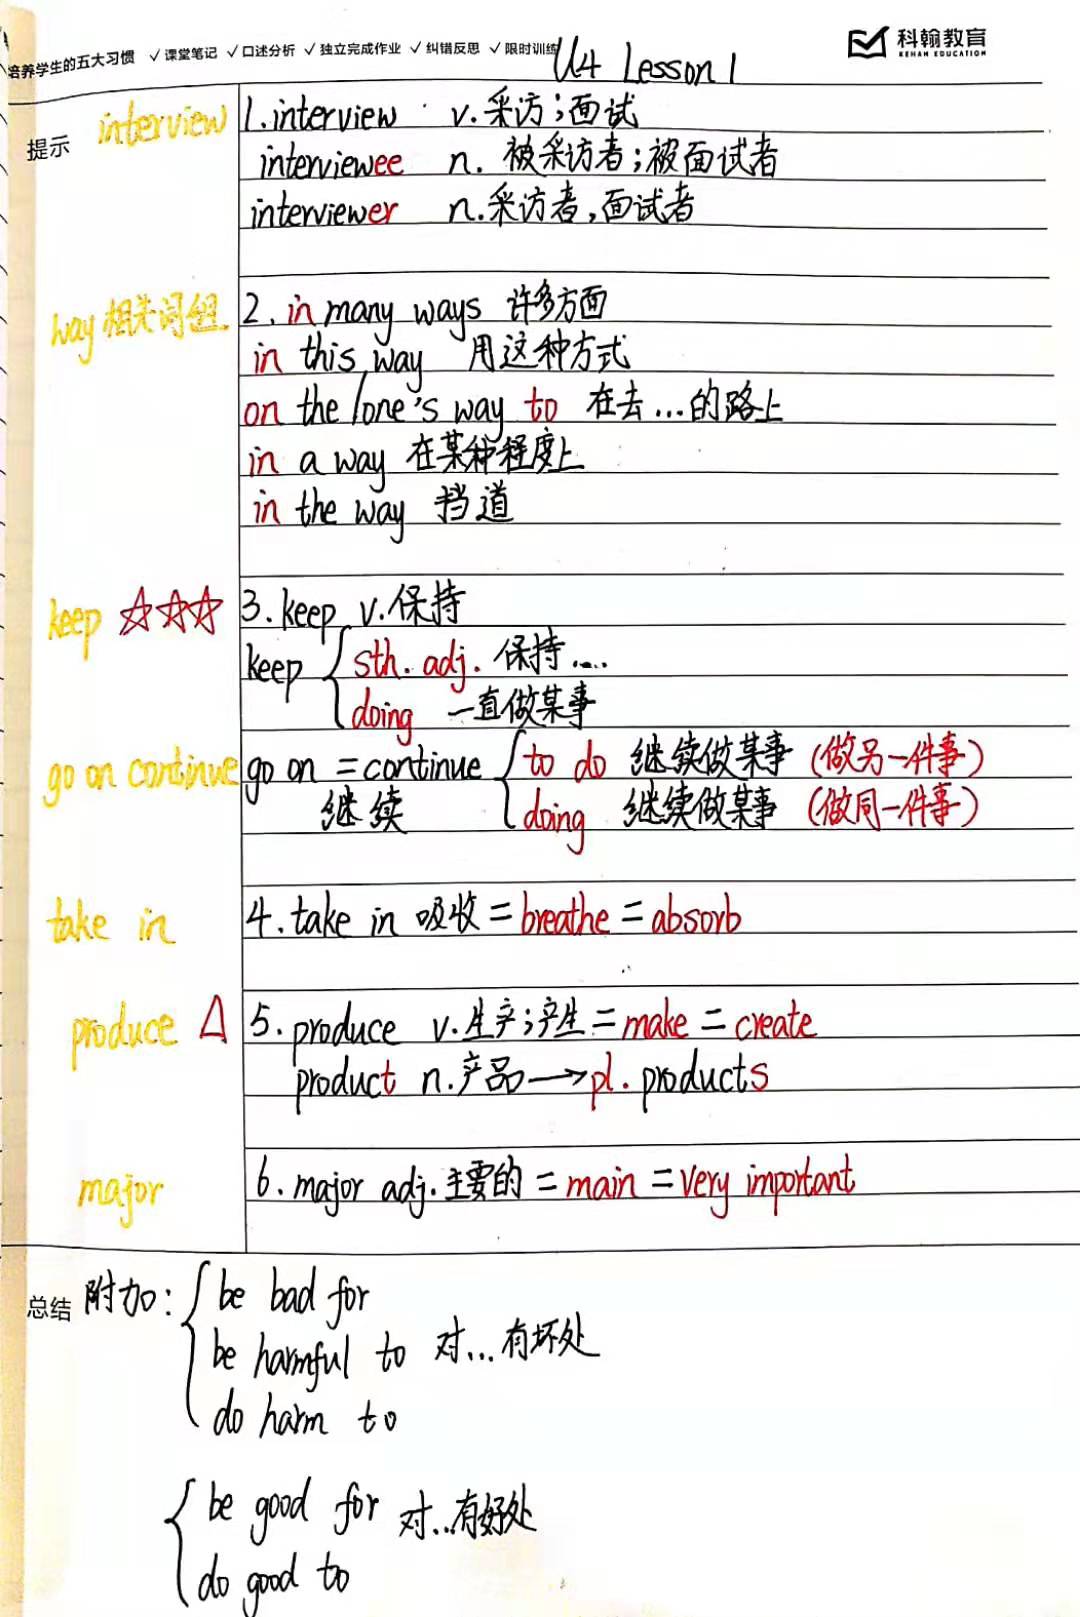 培养学生的五大习惯 √课堂笔记 √口述分析 √独立完成作业 √纠错反思 √限时训练
科翰教育
KEHAN EDUCATION
U4 Lesson 1
提示
interview
1.interview v.采访;面试
interviewee n.被采访者;被面试者
interviewer n.采访者,面试者
way相关词组
2.in many ways 许多方面
in this way 用这种方式
on the/one's way to 在去...的路上
in a way 在某种程度上
in the way 挡道
keep ☆☆☆
3.keep v.保持
keep { sth. adj. 保持....
doing 一直做某事
go on continue
go on = continue { to do 继续做某事 (做另一件事)
继续 doing 继续做某事 (做同一件事)
take in
4.take in 吸收 = breathe = absorb
produce △
5.produce v.生产;产生 = make = create
product n.产品 → pl. products
major
6.major adj.主要的 = main = very important
总结
附加: { be bad for
be harmful to 对...有坏处
do harm to
{ be good for 对...有好处
do good to